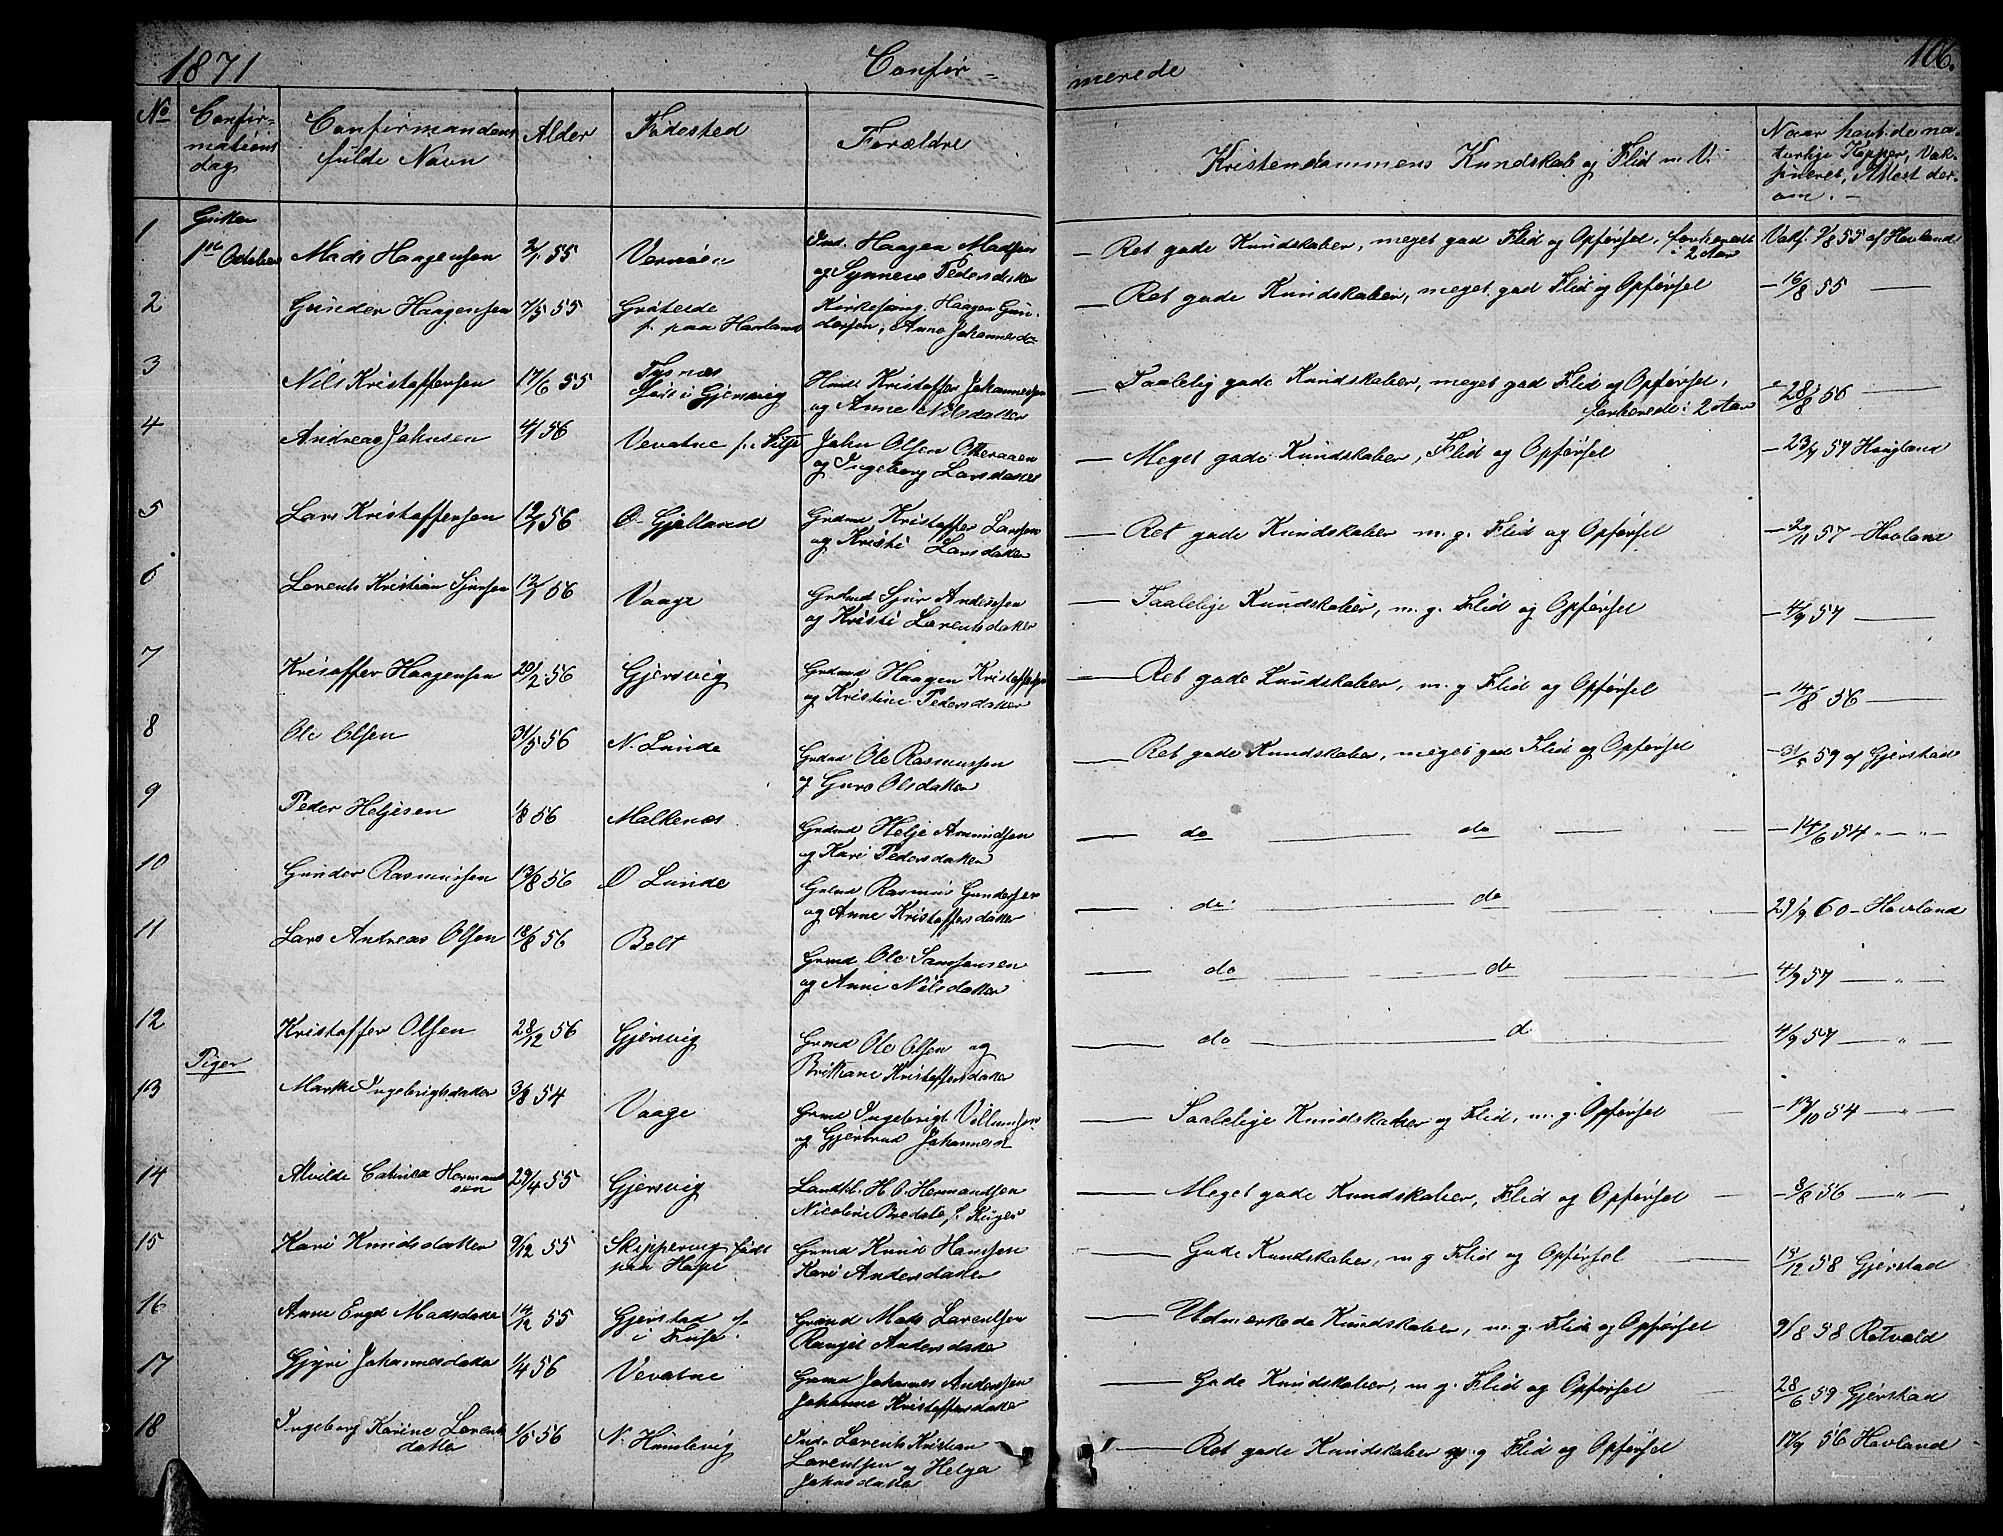 1871 Confir-
merede 106.
No Confir-mations dag Confirmandens fulde Navn Alder Fødested Forældre Kristendommens Kundskab og Flid m. V. Naar havt de naturlige Kopper, Vakcineret, Attest derom.
Gutter
1 1ste October Mads Haagensen 2/1 55 Vernøen Ind. Haagen Madsen og Synneve Pedersdatter Ret gode Kundskaber, meget god Flid og Opførsel, forkerede i 2 Aar Vakc. 9/8 55 af Hovland
2 Gunder Haagensen 7/5 55 Gröteide f. paa Hovland Kirkesang. Haagen Gundersen, Anna Johannesd. Ret gode Kundskaber, meget god Flid og Opførsel — 16/8 55 —
3 Nils Kristoffersen 17/6 55 Tysnæs født i Gjersvig Huusm. Kristoffer Johannessen og Anne Nilsdatter Taalelig gode Kundskaber, meget god Flid og Opførsel, forkerede i 2 Aar — 28/8 56 —
4 Andreas Johnsen 4/1 56 Vevatne John Olsen Otteraaen og Ingeborg Larsdatter Meget gode Kundskaber, Flid og Opførsel — 23/7 57 Hovland
5 Lars Kristoffersen 12/1 56 O. Gjelland Grdmd Kristoffer Larssen og Kristi Larsdatter Ret gode Kundskaber m. g. Flid og Opførsel — 2/11 57 — Hovland
6 Lorents Kristian Sjursen 12/1 56 Vaage Grdmd Sjur Anderssen og Kristi Lorentsdatter Taalelige Kundskaber, m. g. Flid og Opførsel — 4/9 57 —
7 Kristoffer Haagensen 20/2 56 Gjersvig Grdmd Haagen Kristoffersen og Kristine Pedersdatter Ret gode Kundskaber, m. g Flid og Opførsel — 14/8 56 —
8 Ole Olsen 31/5 56 N. Lunde Grdmd Ole Rasmussen og Guro Olsdatter Ret gode Kundskaber, meget god Flid og Opførsel — 31/5 59 af Gjerstad
9 Peder Heljesen 1/8 56 Malkenes Grdmd Helje Amundsen og Kari Pedersdatter — do — do — — 14/6 54 „ — „ —
10 Gunder Rasmussen 13/8 56 O Lunde Grdmd Rasmus Gundersen og Anne Kristoffersdatter — do — do — 29/9 60 — Hovland
11 Lars Andreas Olsen 18/8 56 Belt Grdmd Ole Samsonsen og Anne Nilsdatter — do — do — 4/9 57 — „ —
12 Kristoffer Olsen 28/12 56 Gjersvig Grdmd Ole Olsen og Brithane Kristoffersdatter — do — d — 4/9 57 — „ —
Piger
13 Marthe Ingebrigtsdatter 3/8 54 Vaage Grmd Ingebrigt Villumsen og Gjertrud Johannesd Taalelige Kundskaber og Flid, m. g. Opførsel — 13/10 54 — „ —
14 Alvilde Catinka Hermandsen 29/4 55 Gjersvig Landhl. H. O. Hermandsen Nicoline Bredal f. Krüger Meget gode Kundskaber, Flid og Opførsel — 8/8 56 — „ —
15 Kari Knudsdatter 9/12 55 Skippervig født paa Hope Grmd Knud Hanssen Kari Andersdatter Gode Kundskaber, m g Flid og Opførsel 15/12 58 Gjerstad
16 Anne Engel Madsdatter 14/12 55 Gjerstad f. i Fuse. Grmd Mads Lorentsen Rangel Andersdatter Udmerkede Kundskaber, m. g. Flid og Opførsel 9/8 58 Rotvold
17 Gjyri Johannesdatter 1/4 56 Vevatne Grmd Johannes Anderssen Johanne Kristoffersdatter Gode Kundskaber, m g. Flid og Opførsel 28/6 59 Gjerstad
18 Ingeborg Karine Lorentsdatter 1/5 56 N. Himlevig Inds. Lorents Kristian Lorentsen og Helga Johnsdatter Ret gode Kundskaber m. g Flid og Opførsel 17/9 56 Hovland